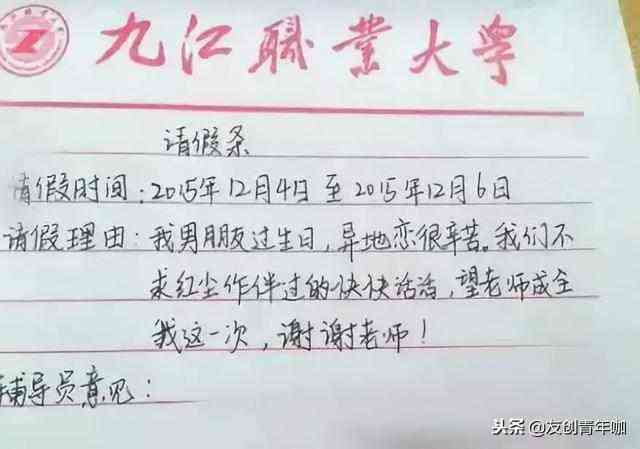 九江職業大学
请假条
请假时间:2015年12月4日至2015年12月6日
请假理由:我男朋友过生日,异地恋很辛苦。我们不
求红尘作伴过的快快活活,望老师成全
我这一次,谢谢老师!
辅导员意见:
头条@友创青年咖